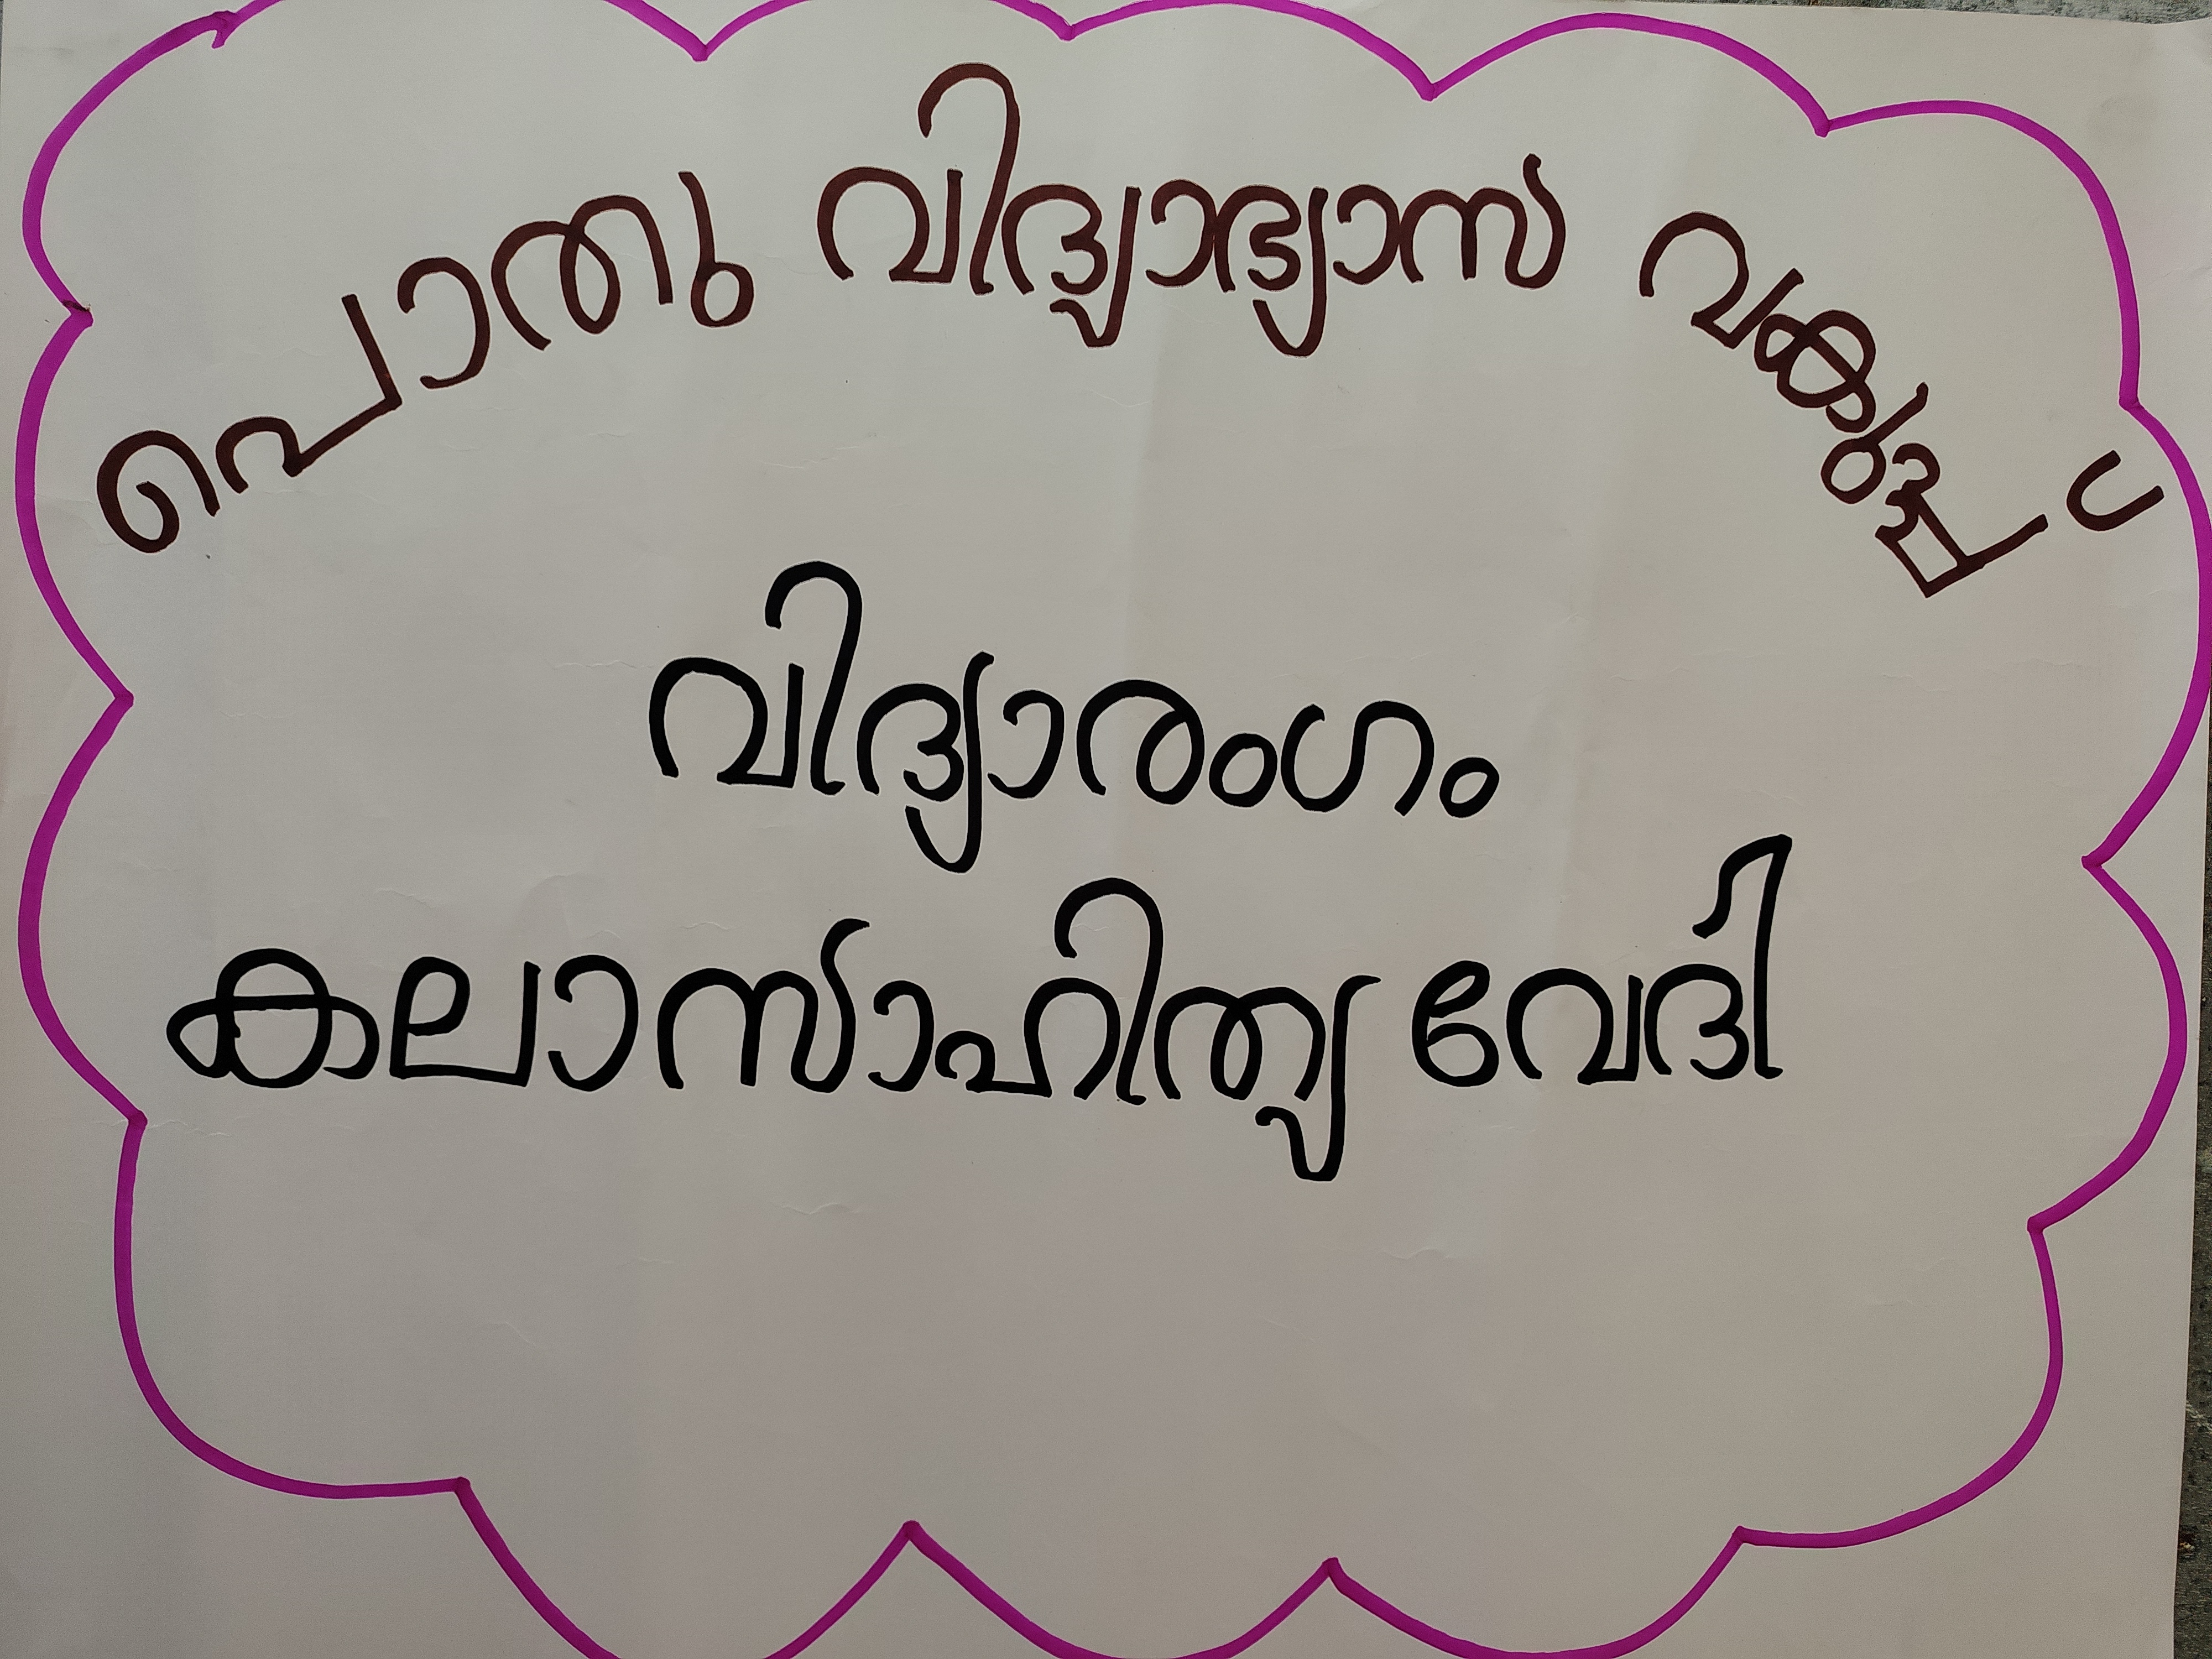 പൊതു വിദ്യാഭ്യാസ വകുപ്പ്
വിദ്യാരംഗം
കലാസാഹിത്യ വേദി